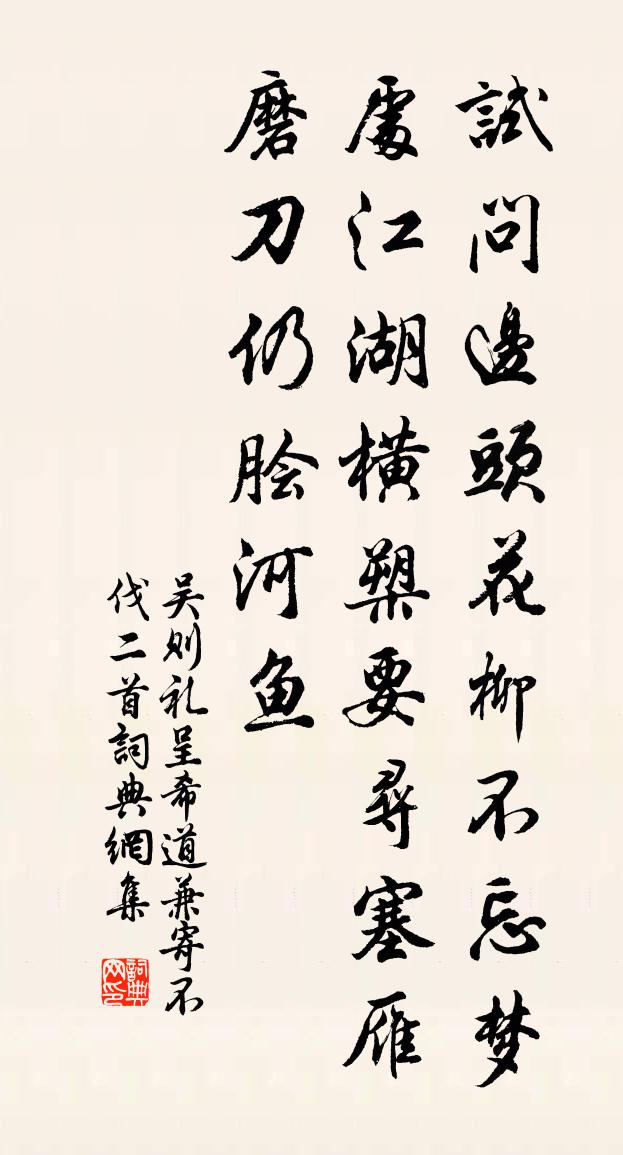 試問邊頭花柳不忘梦
處江湖橫槊要尋塞雁
磨刀仍脍河鱼
吴则礼呈希道兼寄不
伐二首詞典網集
詞典网印